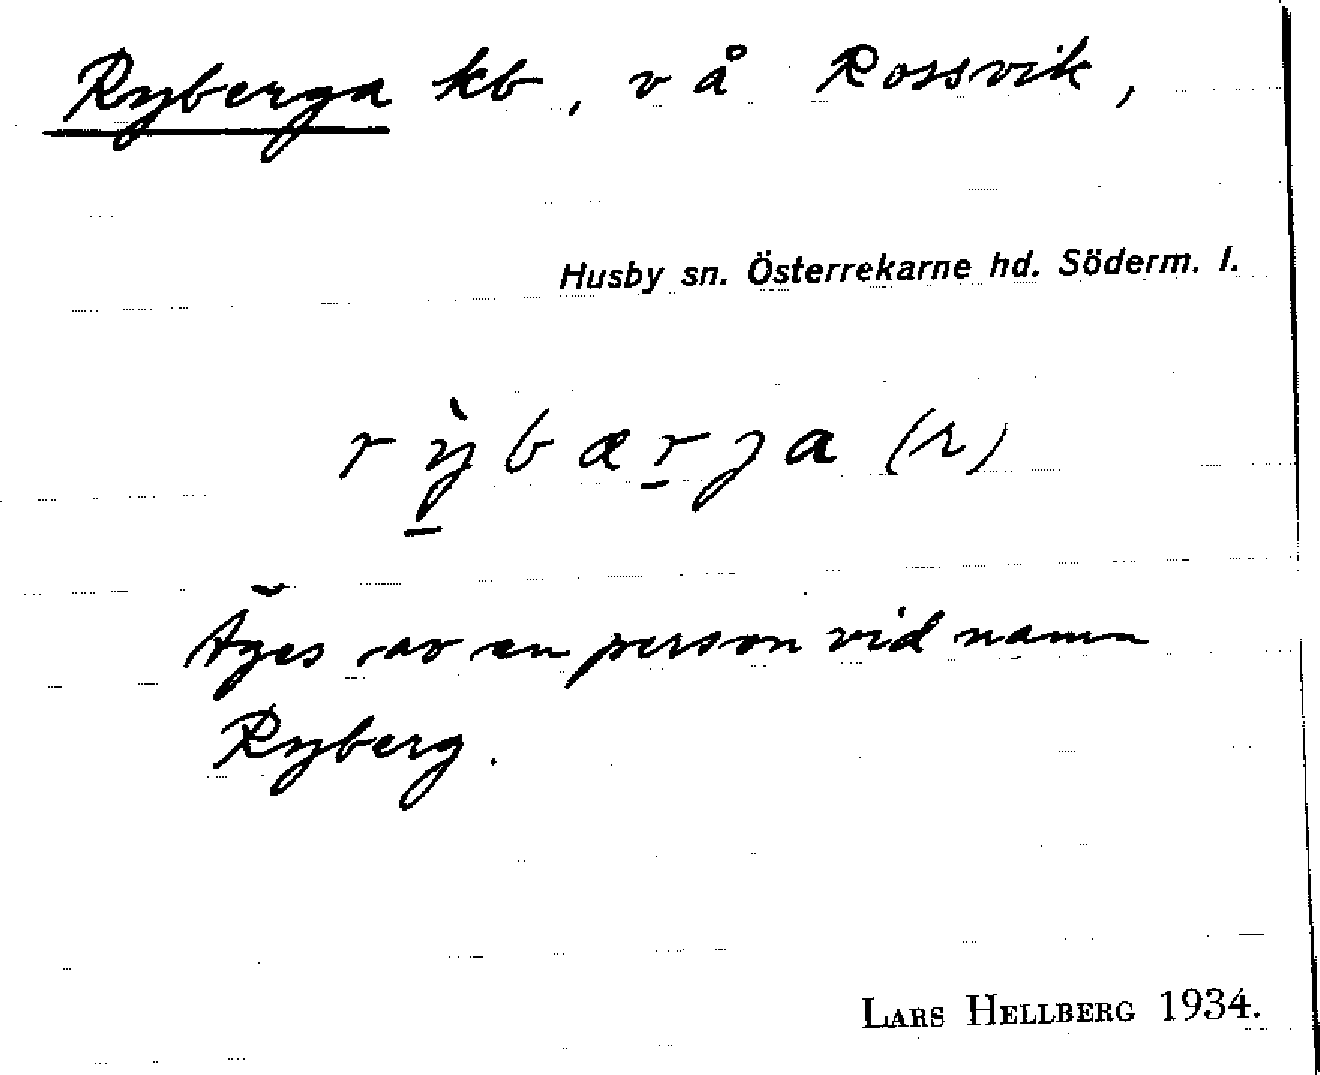 Ryberga kb, v å Rossvik,
Husby sn. Österrekarne hd. Söderm. l.
rỳbærja (r)
Äges av en person vid namn
Ryberg.
LARS HELLBERG 1934.